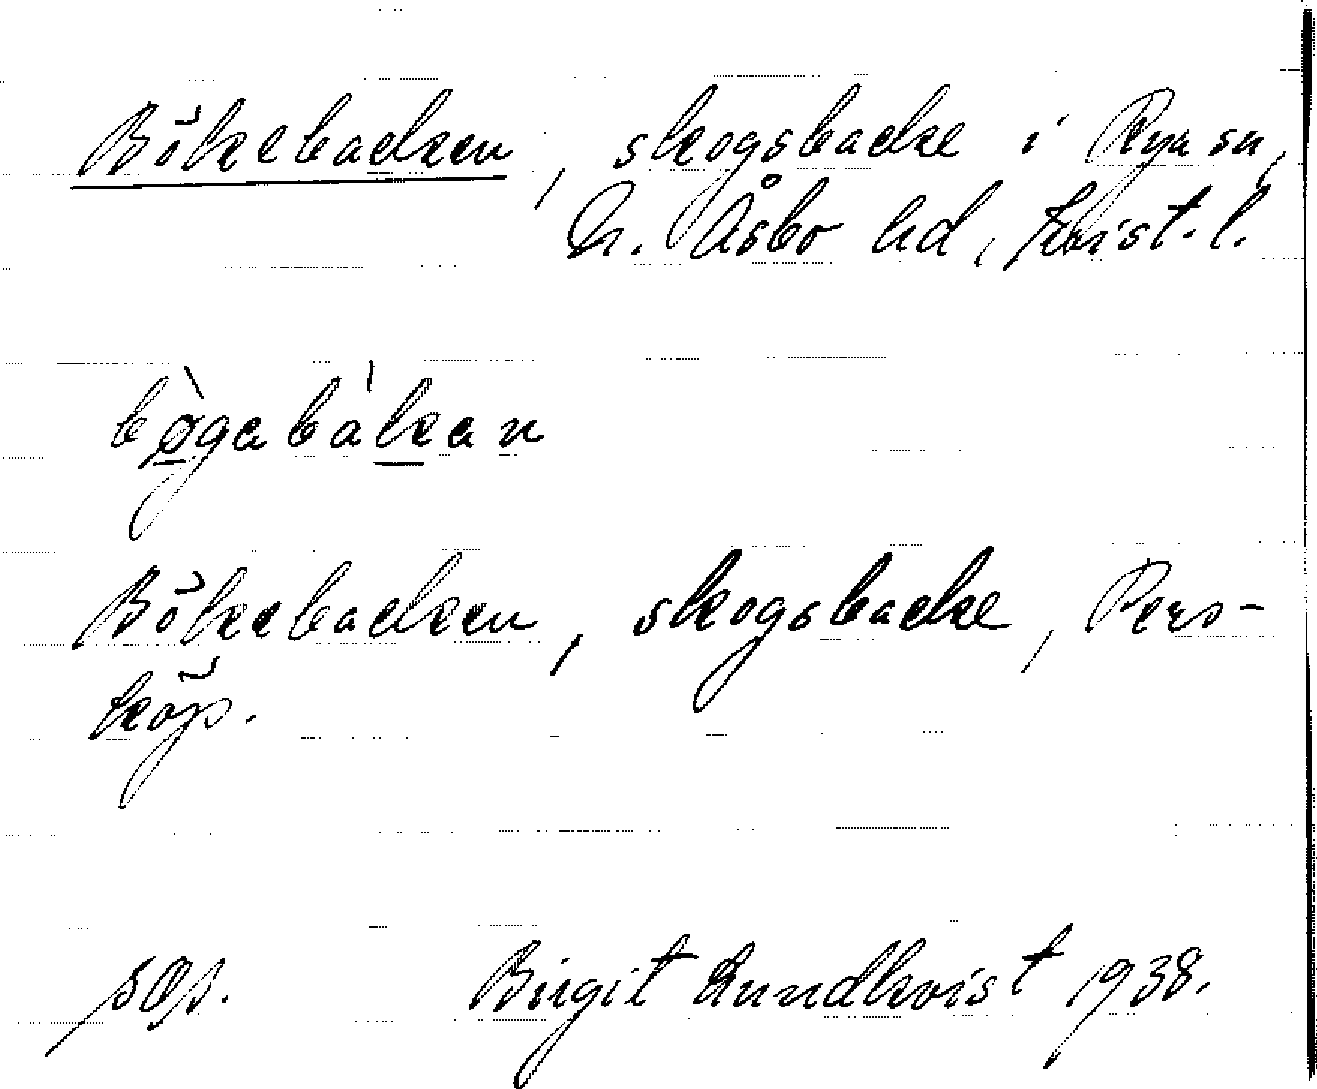 Bökebacken, skogsbacke i Rya sn,
N. Åsbo hd, Krist. l.
bø̀gabákan
Bökebacken, skogsbacke, Pers-
köp.
Birgit Lundkvist 1938.